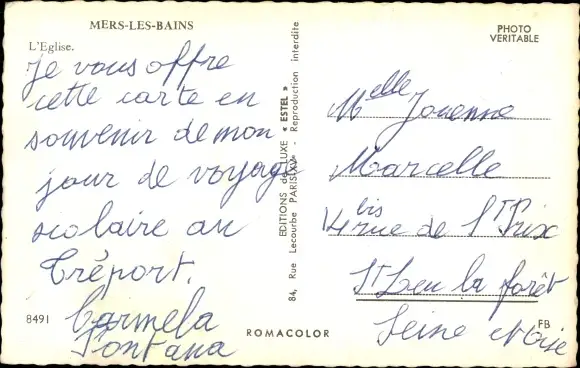 MERS-LES-BAINS
L'Eglise.
Je vous offre
cette carte en
souvenir de mon
jour de voyage
scolaire au
Tréport.
Carmela
Fontana
8491
EDITIONS de LUXE « ESTEL » - Reproduction interdite
84, Rue Lecourbe PARIS-XV°
ROMACOLOR
PHOTO
VERITABLE
Melle Jouenne
Marcelle
14 bis rue de St Prix
St Leu la forêt
Seine et Oise
FB